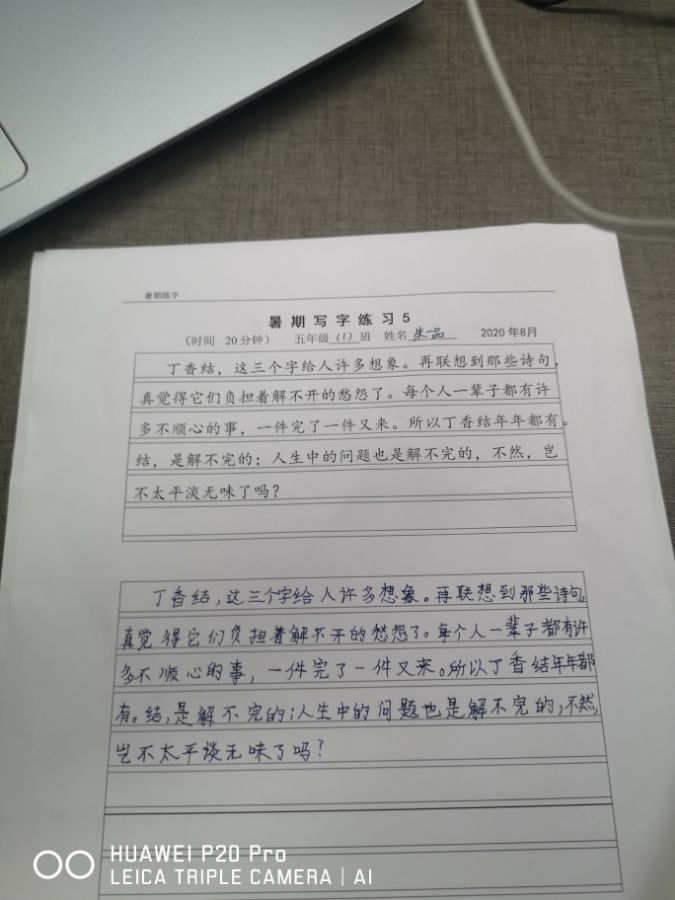 暑期练字
暑期写字练习5
（时间 20分钟） 五年级(1)班 姓名朱一品 2020年8月
丁香结，这三个字给人许多想象。再联想到那些诗句，
真觉得它们负担着解不开的愁怨了。每个人一辈子都有许
多不顺心的事，一件完了一件又来。所以丁香结年年都有。
结，是解不完的；人生中的问题也是解不完的，不然，岂
不太平淡无味了吗？
丁香结，这三个字给人许多想象。再联想到那些诗句，
真觉得它们负担着解不开的愁怨了。每个人一辈子都有许
多不顺心的事，一件完了一件又来。所以丁香结年年都
有。结，是解不完的；人生中的问题也是解不完的，不然，
岂不太平谈无味了吗？
HUAWEI P20 Pro
LEICA TRIPLE CAMERA | AI